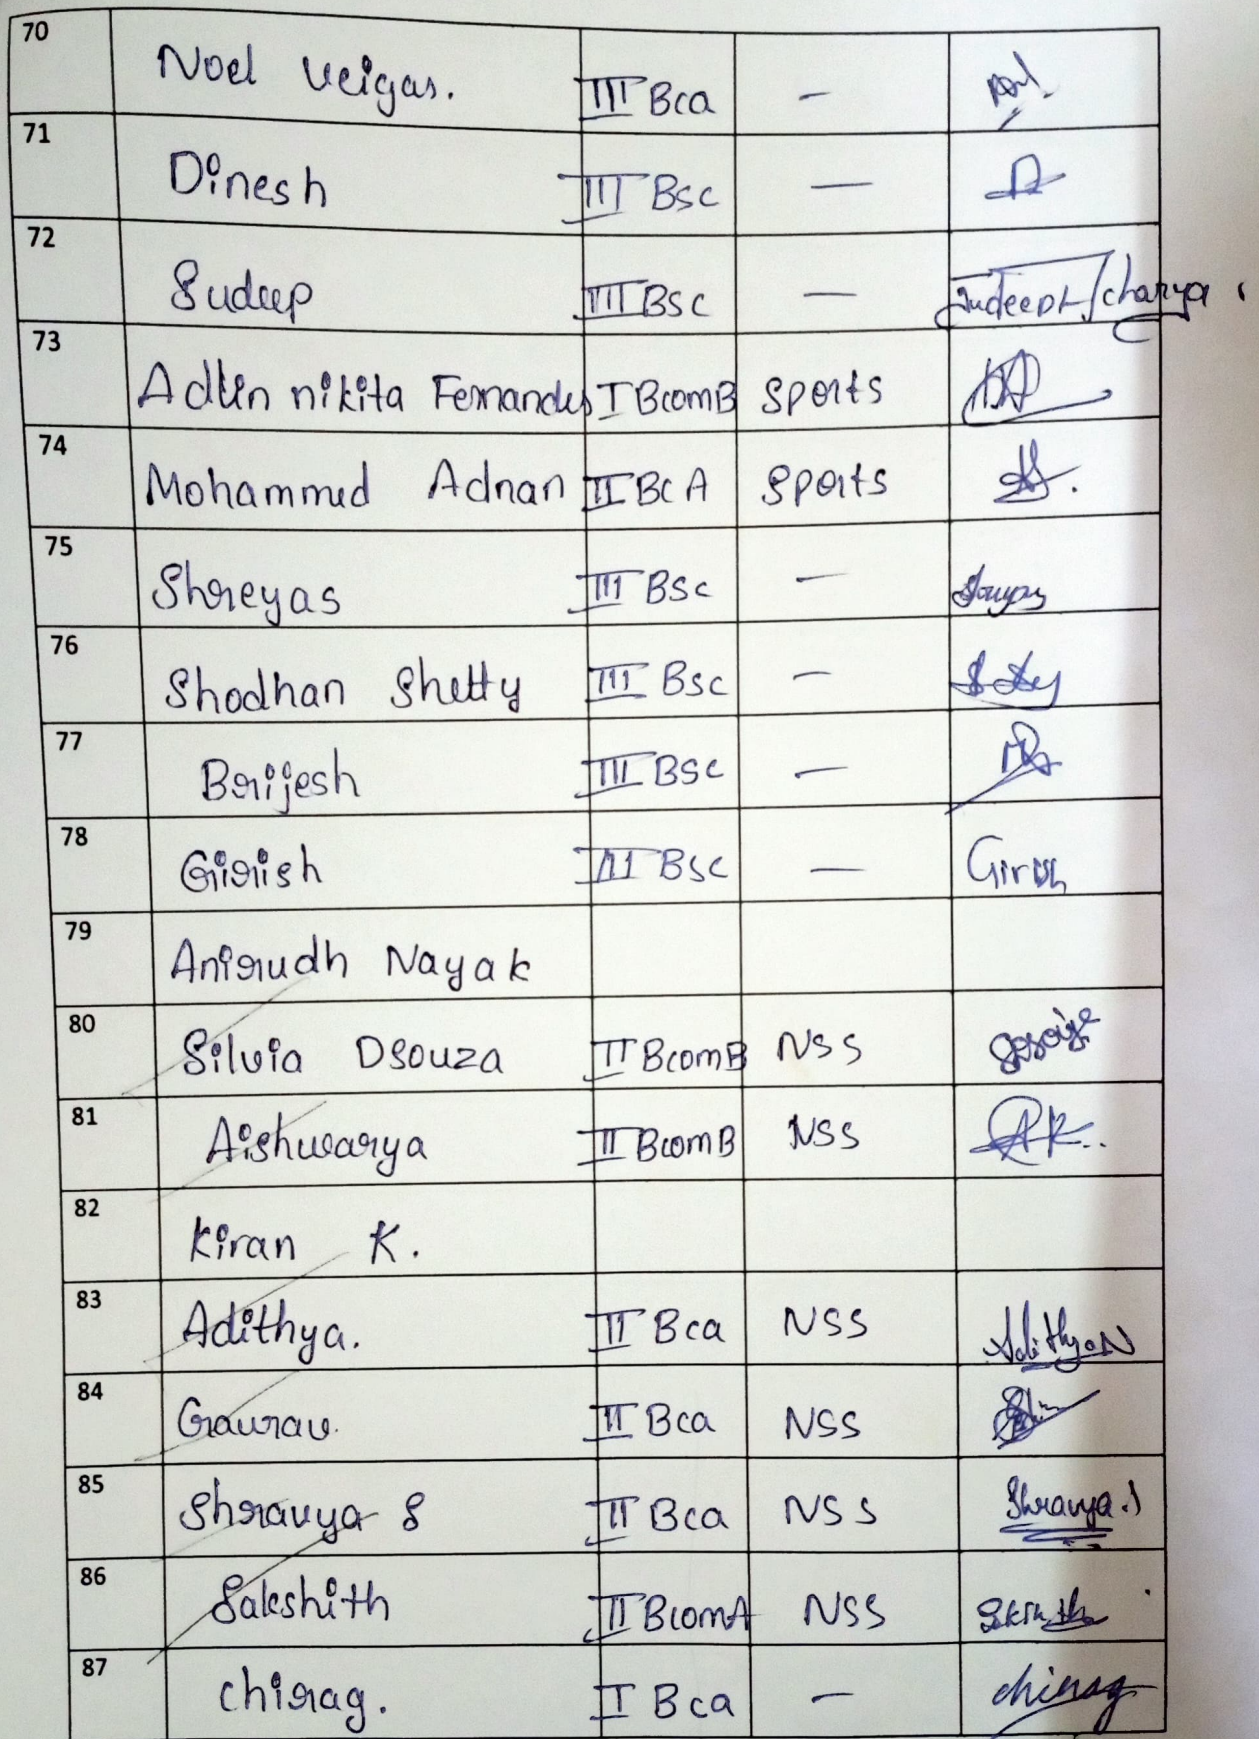 70 Noel Veigas. III Bca –
71 Dinesh III Bsc –
72 Sudeep III Bsc –
73 Adlin nikita Fernandes I BcomB Sports
74 Mohammed Adnan II BcA Sports
75 Shreyas III Bsc –
76 Shodhan Shetty III Bsc –
77 Brijesh III Bsc –
78 Girish III Bsc – Girish
79 Anirudh Nayak
80 Silvia Dsouza II BcomB NSS
81 Aishwarya II BcomB NSS AK..
82 Kiran K.
83 Adithya. II Bca NSS Adithya N
84 Gaurav. II Bca NSS
85 Shravya S II Bca NSS Shravya.S
86 Sakshith II BcomA NSS
87 chirag. I Bca – chirag